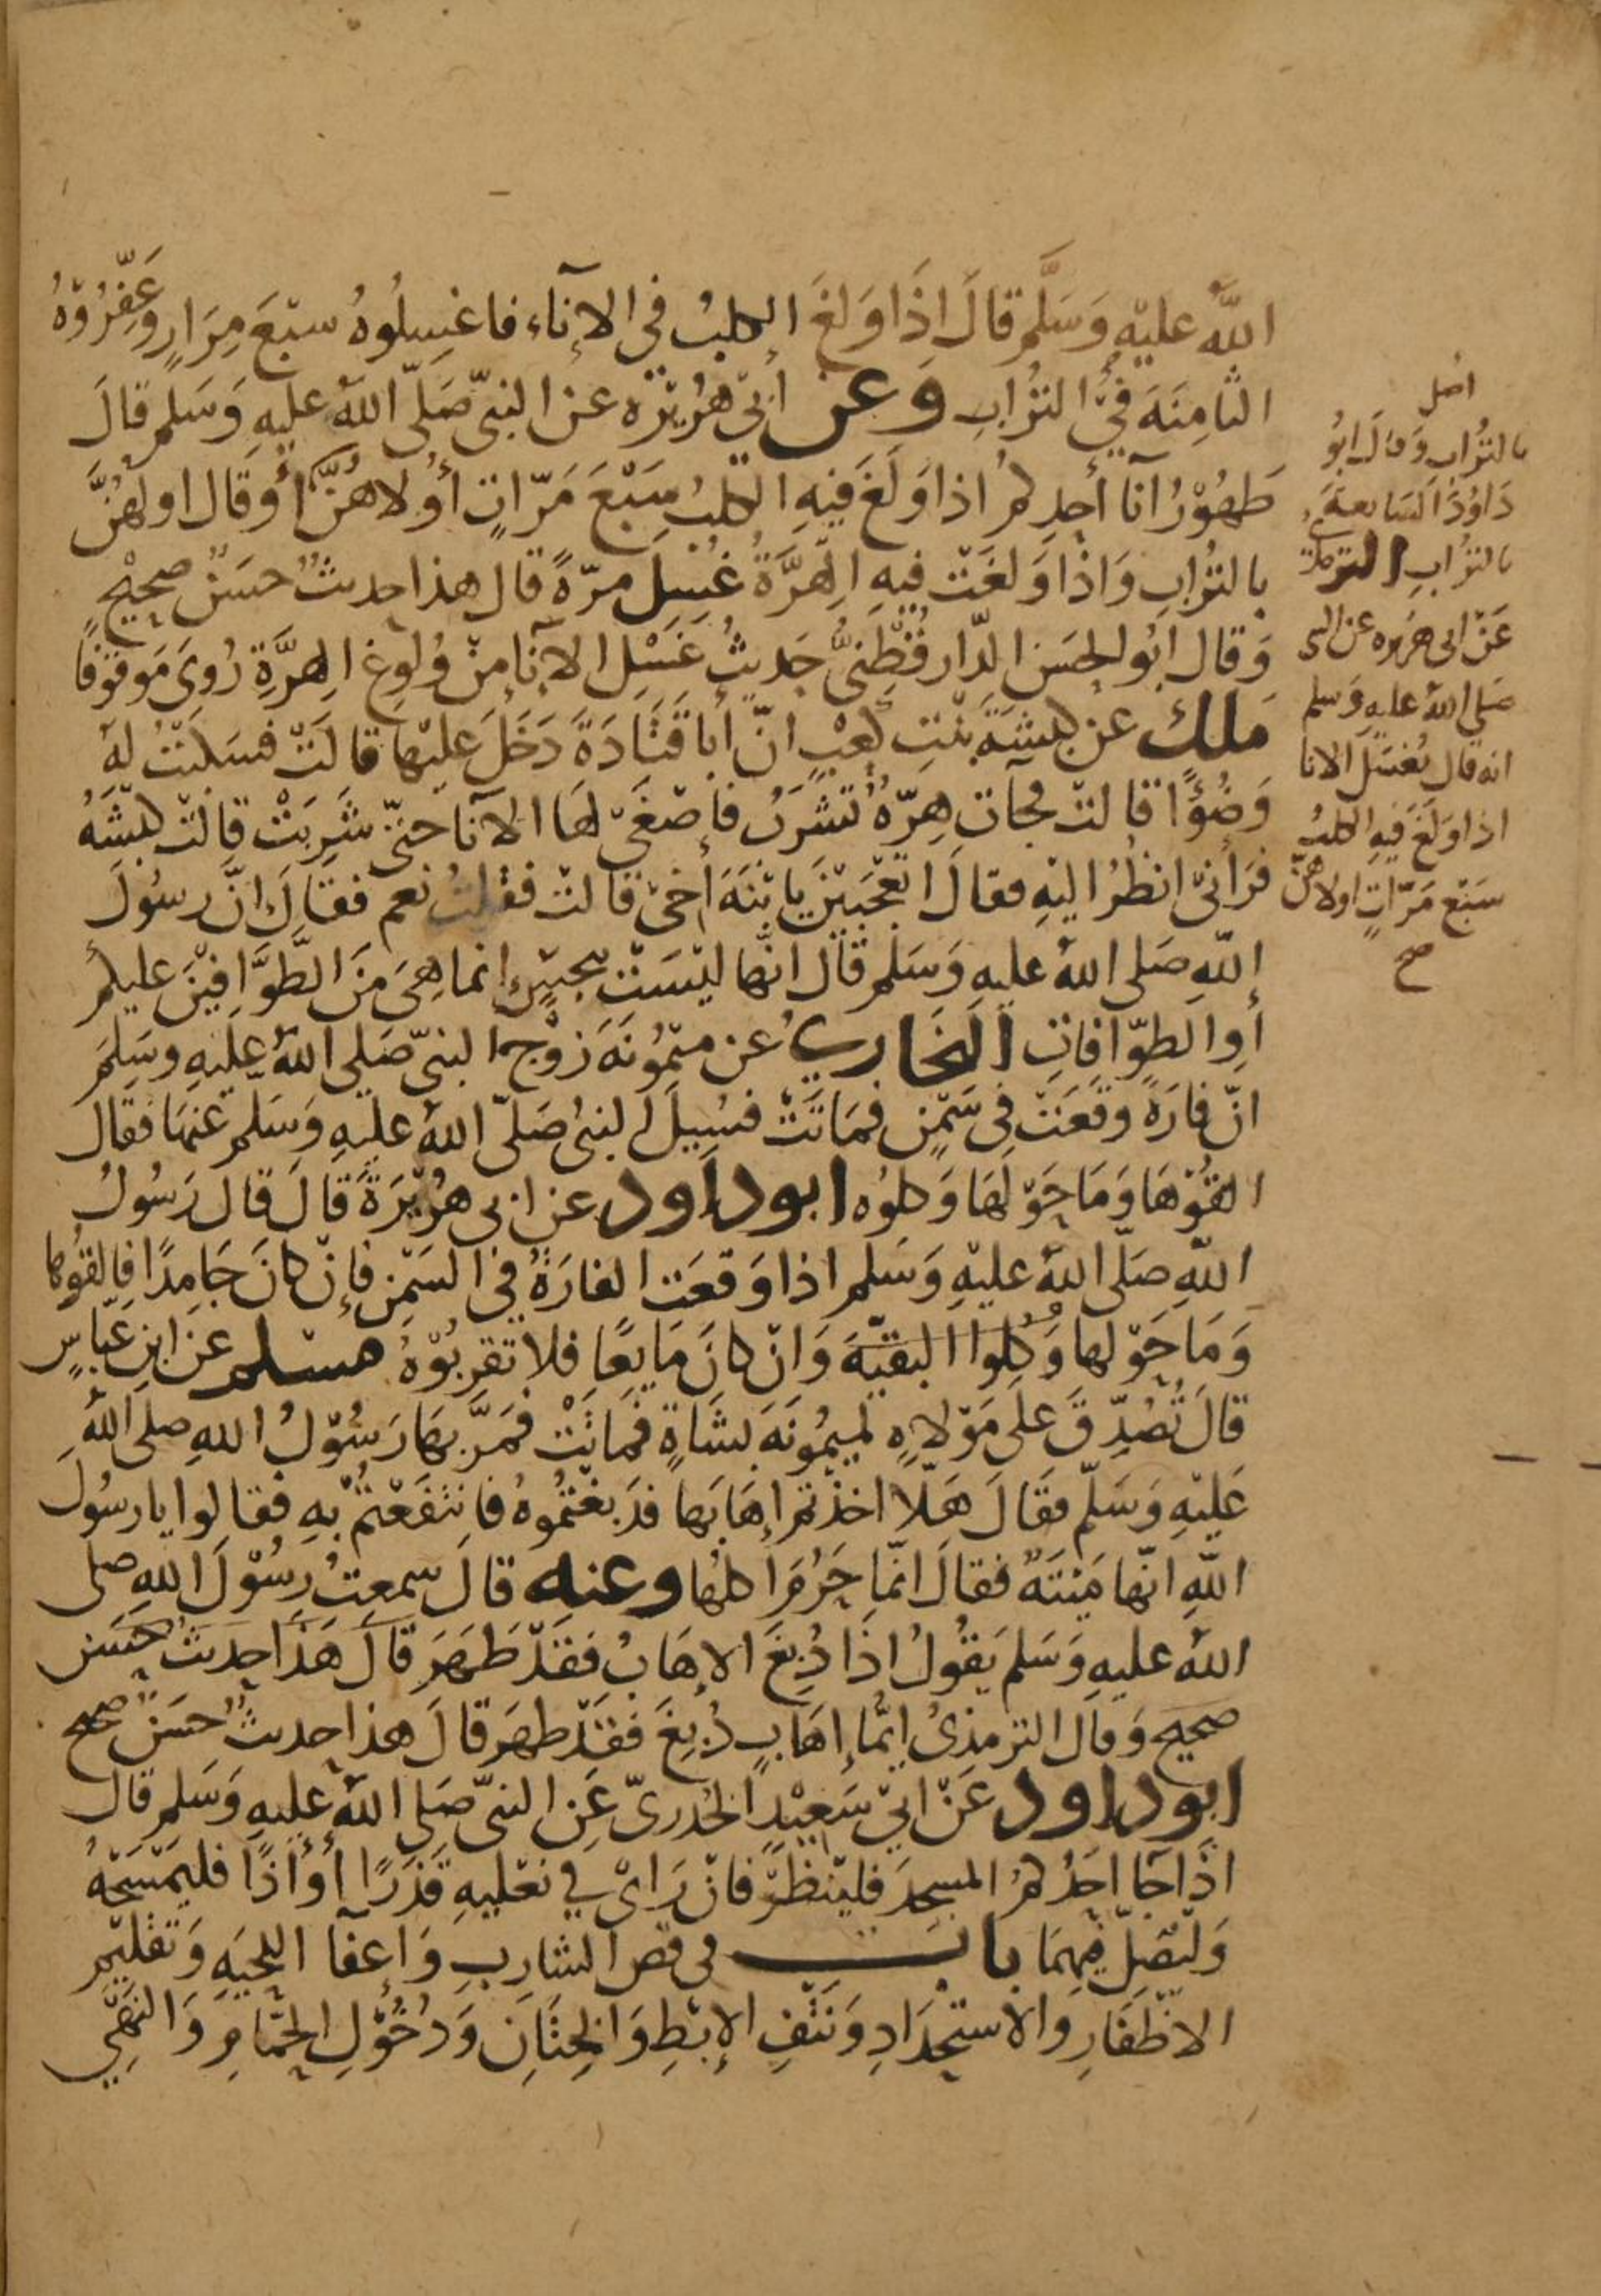 اللَّهُ عليْهِ وَسَلَّم قالَ اِذَا وَلَغَ الكلبُ في الإنآء فاغسِلُوهُ سبْعَ مِرَارٍ وعَفِّرُوْهُ
الثامِنَةَ فيُّ التُرُابِ وَعن أبي هُرُيْرَه عن النبيّ صَلّى اللهُ عليهِ وَسَلم قالَ
طَهُوْرُ آنآ أحدِكمُ اذا وَلَغَ فيهِ الكلبُ سَبْعَ مَرّاتٍ أُولاهُنَّ أوقال اولهُنَّ
بالتُرُابِ وَاذَا وَلغَتْ فيهِ الهِرَّةُ غُسِلَ مرّةً قال هذا حديثٌ حسَنٌ صحيْحٍ
وَقال ابُو الحسَن الدّارقُطْنِيُّ حَديثُ غَسْلِ الآنآ مِنْ وُلوغِ الهِرَّةِ رُوِيَ مَوقوفًا
مَلك عن كبشَةَ بنْتِ كعْبٍ انّ أباقَتَادَةَ دَخَلَ عليْها قالَتْ فسَكبْتُ لهُ
وَضُوًٓا قالتْ فجآت هِرّةٌ تَشْرَبُ فأصْغَىٰ لهَا الآنآ حتىّ شَرِبَتْ قالتْ كبْشَهُ
فرَآنىِ انظُرُ اليْهِ فقالَ اتعْجَبيْنَ يابْنَهَ أخي قالتْ فقلتُ نعم فقالَ اِنَّ رسُولَ
اللهِ صَلى اللهُ عليهِ وَسَلم قال انّها ليْسَتْ بنجسٍ إنما هِيَ مِنَ الطَّوَّافيْنَ عليكم
أوِ الطوّافاتِ البخاريُّ عن ميْمُونَهَ زوْج النبيّ صَلى اللهُ عليهِ وسَلمَ
انّ فارَةً وقَعَتْ فى سَمْنٍ فمَاتَتْ فسُيِلَ النبيُ صَلّى اللهُ عليهِ وَسَلم عنها فقال
القُوْهَا وَمَا حَوْلهَا وَكلوُه ابوداود عن ابى هرُيْرَةَ قالَ قال رَسُولُ
اللهِ صَلّى اللهُ عليْهِ وَسَلم اذا وَقعَت الفارَةُ في السَمْن فإنْ كانَ جَامِدًا فالقوُها
وَمَا حَوْلها وُكلوا البقيّهَ وَانْ كانَ مَايعًا فلا تقربُوْهُ مسْلم عن ابن عبّاسٍ
قالَ تُصُدِّقَ علىَ مَوْلاةٍ لميمُونَهَ بشَاةٍ فماتَتْ فمَرَّ بهَا رَسُوْلُ اللهِ صلى اللهُ
عَليْهِ وَسَلّم فقالَ هَلّا اخذْتم إهَابَها فدَبغْتُموهُ فانتَفَعْتمُ بْهِ فقالوا يارسُولَ
اللهِ انّها مَيْتَةٌ فقالَ انّما حَرُمَ أكلهُا وعنه قالَ سمعتُ رسُوْلَ اللهِ صلى
اللهُ عليهِ وَسَلم يَقُولُ اذَا دُبِغَ الإهَابُ فقَدْ طَهَرَ قالَ هَذَا حديثٌ حسَن
صحيح وَقال الترمِذىُ ايُّما إهَابٍ دُبغَ فقَدْ طهَرَ قالَ هذا حديثٌ حسَنٌ صحيح
ابوداود عَنْ ابيْ سَعيْدٍ الخُدرىّ عَنِ النبىّ صَلى اللهُ عليهِ وَسَلم قال
اذَا جآ احَدُكمُ المسجدَ فليَنْظرْ فانْ رَاىْ في نعْليهِ قَذَرًا أوْ أذًا فليَمْسَحْهُ
وَليُصَلّ فيهِمَا باب فى قص الشارِبِ وَإعفآ اللحيَهِ وَتقليْم
الاظْفارِ والاستحْدَادِ وَنَتْفِ الإبْطِ وَالخِتَانِ وَدُخُوْلِ الحَمّامِ وَالنَهْيِ
أصل
بالتُرُاب وَقالَ ابوُ
دَاوُدَ السَابعَةَ
بالتُرُابِ الترمذى
عَنْ ابى هَريره عن النبى
صَلى اللهُ عليهِ وَسلم
انه قال يُغسَلُ الانا
اذا وَلَغَ فيهِ الكلبُ
سَبْع مَرّاتٍ اولاهنّ
صح